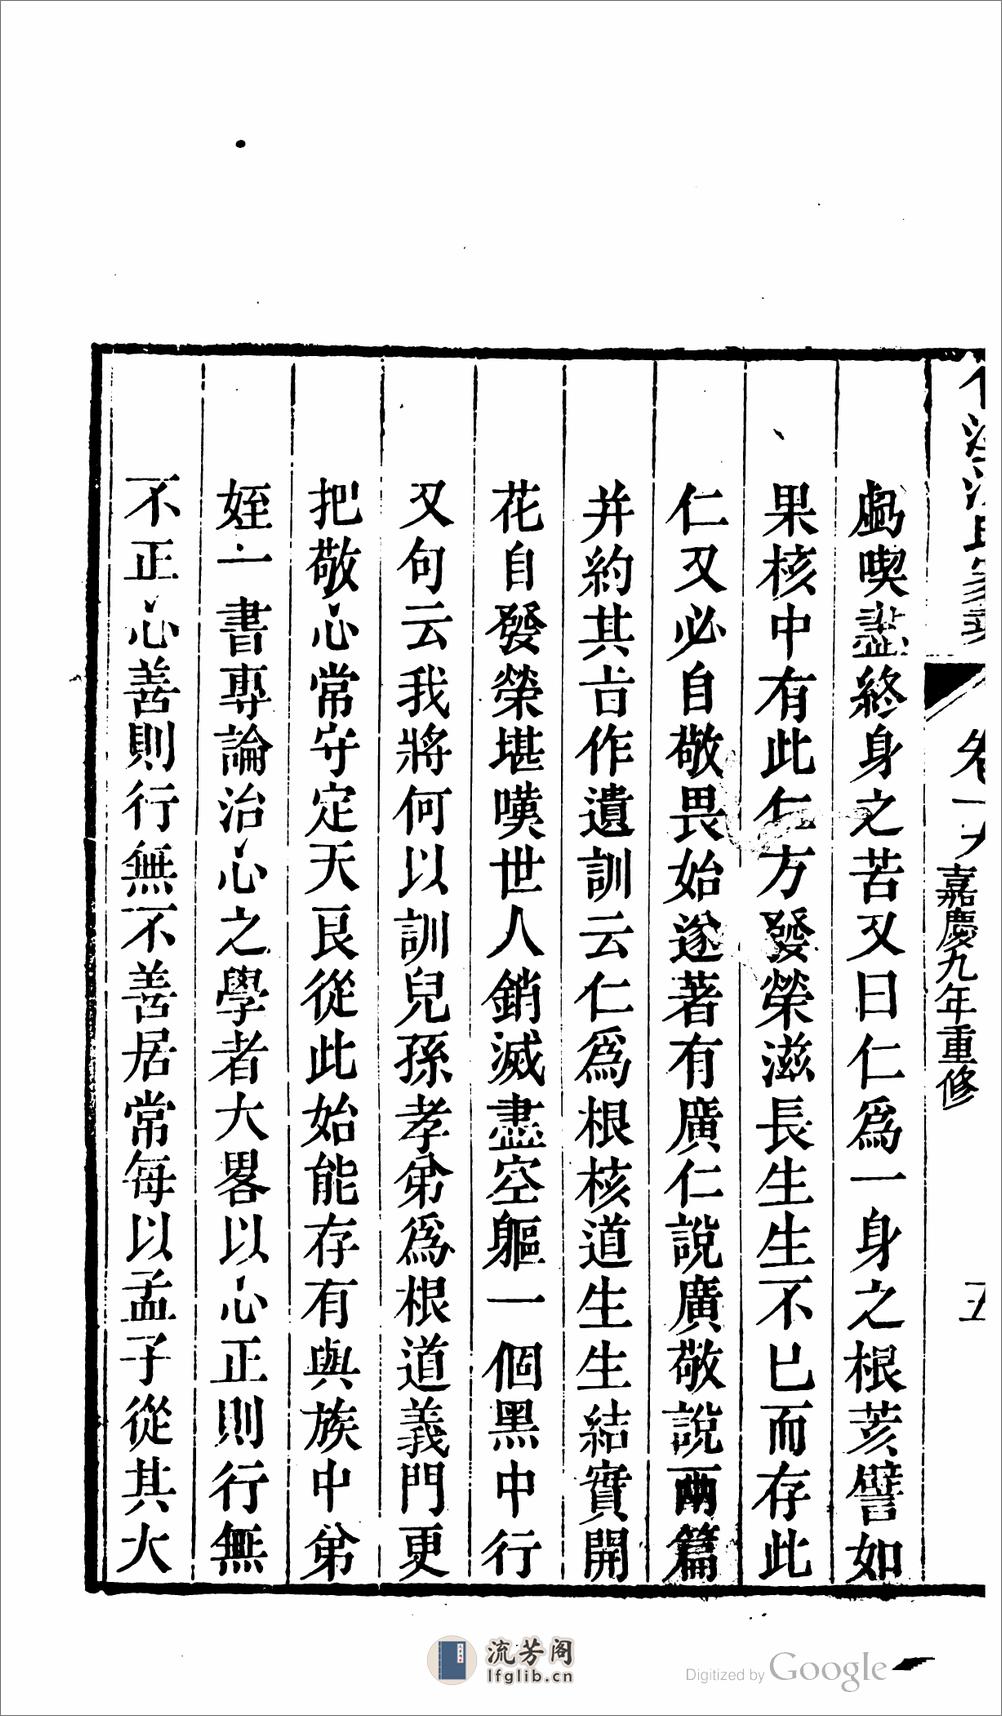 嘉慶九年重修
五
虧喫盡終身之苦又曰仁爲一身之根荄譬如
果核中有此仁方發榮滋長生生不已而存此
仁又必自敬畏始遂著有廣仁說廣敬說兩篇
并約其㫖作遺訓云仁爲根核道生生結實開
花自發榮堪嘆世人銷滅盡空軀一個黑中行
又句云我將何以訓兒孫孝弟爲根道義門更
把敬心常守定天良從此始能存有與族中弟
姪一書專論治心之學者大畧以心正則行無
不正心善則行無不善居常每以孟子從其大
流芳阁
lfglib.cn
Digitized by Google